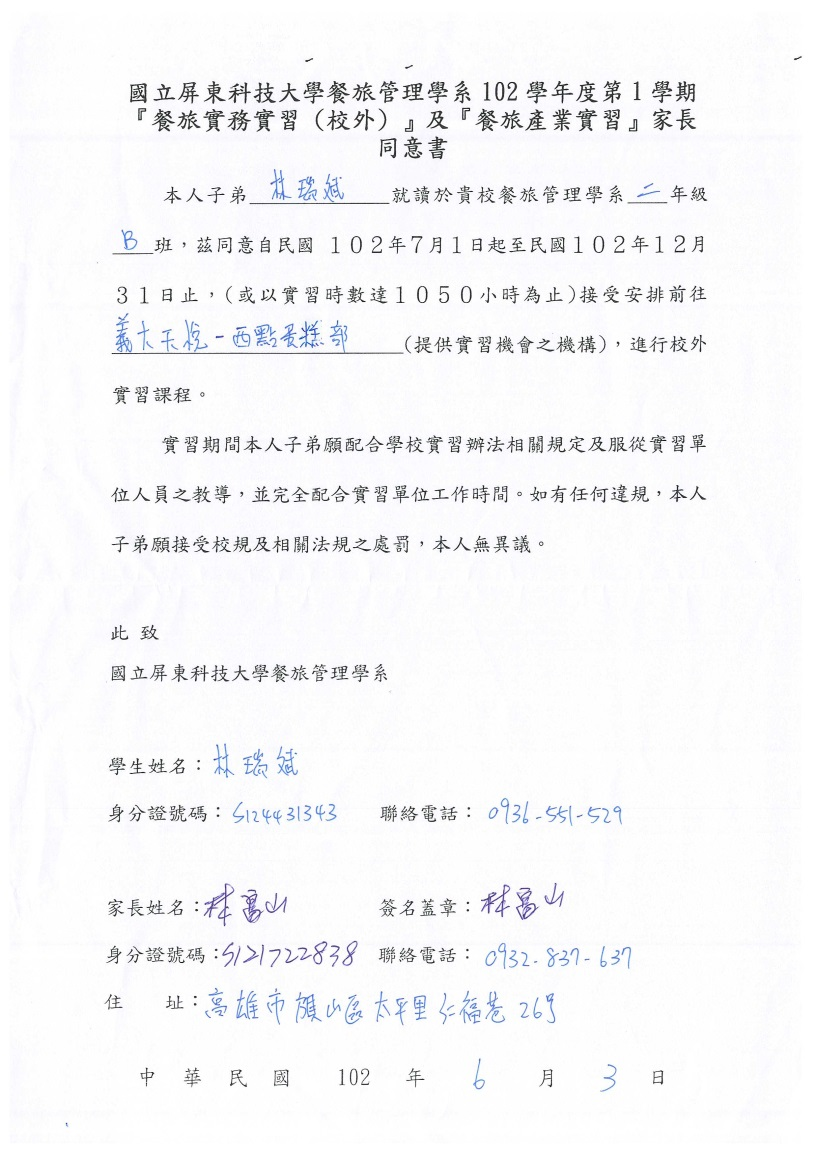 國立屏東科技大學餐旅管理學系102學年度第1學期
『餐旅實務實習（校外）』及『餐旅產業實習』家長
同意書
本人子弟林瑞斌就讀於貴校餐旅管理學系二年級
B班，茲同意自民國 １０２年７月１日起至民國１０２年１２月
３１日止，(或以實習時數達１０５０小時為止)接受安排前往
義大天悅-西點蛋糕部(提供實習機會之機構)，進行校外
實習課程。
實習期間本人子弟願配合學校實習辦法相關規定及服從實習單
位人員之教導，並完全配合實習單位工作時間。如有任何違規，本人
子弟願接受校規及相關法規之處罰，本人無異議。
此 致
國立屏東科技大學餐旅管理學系
學生姓名：林瑞斌
身分證號碼：S124431343 聯絡電話：0936-551-529
家長姓名：林富山 簽名蓋章：林富山
身分證號碼：S121722838 聯絡電話：0932-837-637
住 址：高雄市旗山區太平里仁福巷26號
中 華 民 國 102 年 6 月 3 日